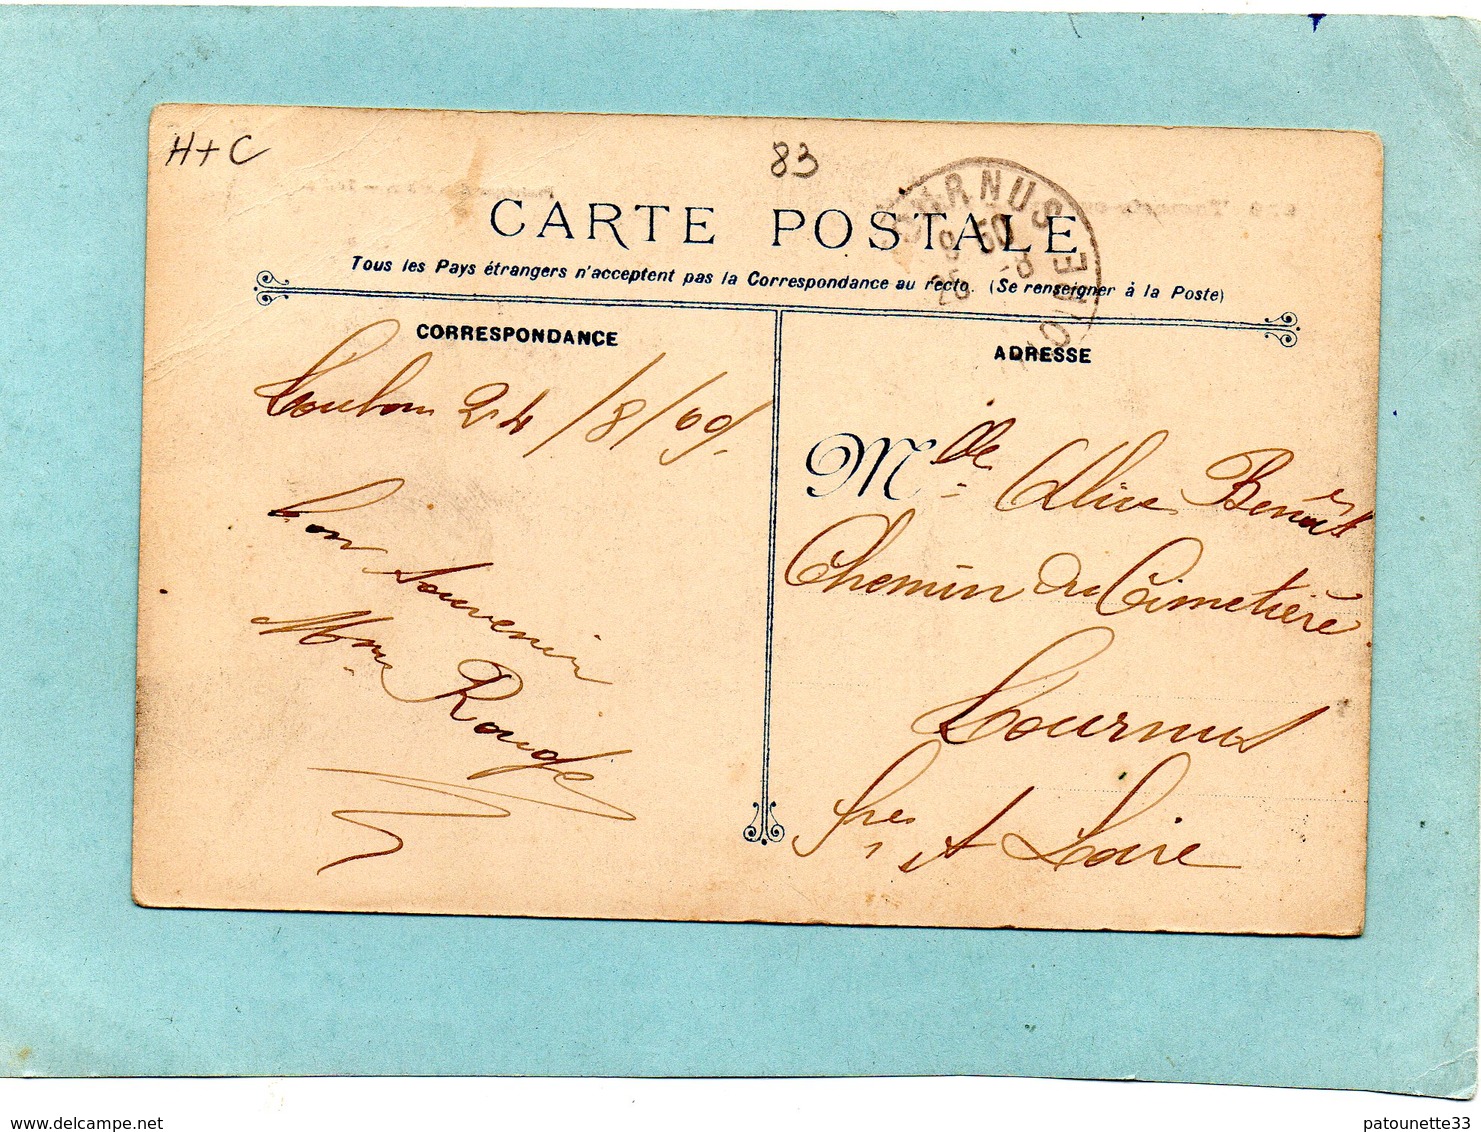 H+C
83
CARTE POSTALE
Tous les Pays étrangers n'acceptent pas la Correspondance au recto. (Se renseigner à la Poste)
CORRESPONDANCE
Toulon 24/8/09.
bon souvenir
Mme Rouge
ADRESSE
Mlle Alice Benoît
Chemin du Cimetière
Tournus
Sne et Loire
URNUS
9 50
25 -8
OIRE
delcampe.net
patounette33